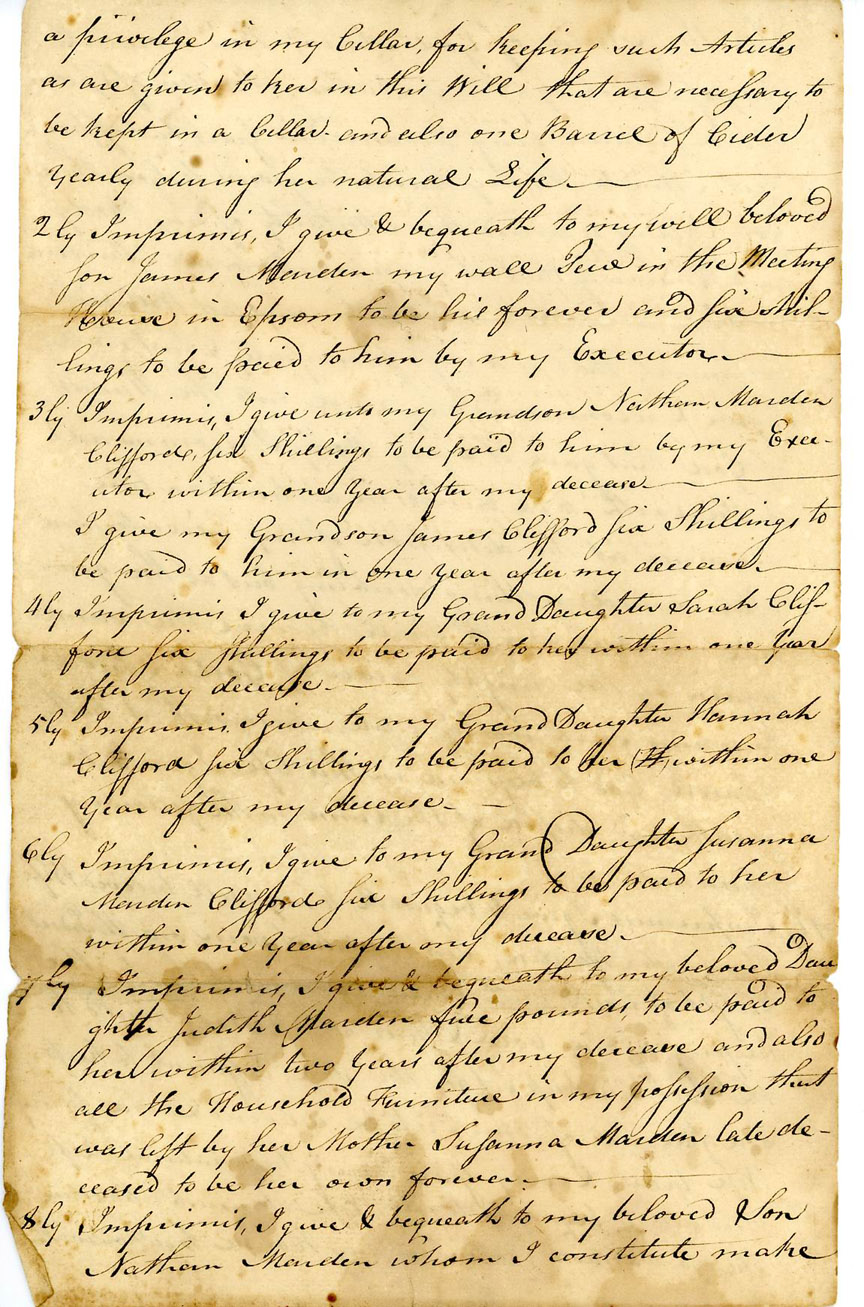 a privilege in my Cellar, for keeping such Articles
as are given to her in this Will that are necessary to
be kept in a Cellar. and also one Barrel of Cider
Yearly during her natural Life.
2ly Imprimis, I give & bequeath to my well beloved
son James Marden my wall Pew in the Meeting
House in Epsom to be his forever and six shil-
lings to be paid to him by my Executor.
3ly Imprimis, I give unto my Grandson Nathan Marden
Clifford, six Shillings to be paid to him by my Exec-
utor within one Year after my decease.
I give my Grandson James Clifford six Shillings to
be paid to him in one year after my decease.
4ly Imprimis I give to my Grand Daughter Sarah Clif-
ford six shillings to be paid to her within one Year
after my decease.
5ly Imprimis. I give to my Grand Daughter Hannah
Clifford six Shillings to be paid to her within one
Year after my decease.
6ly Imprimis, I give to my Grand Daughter Susanna
Marden Clifford six Shillings to be paid to her
within one Year after my decease.
7ly Imprimis, I give & bequeath to my beloved Dau
ghter Judith Marden five pounds, to be paid to
her within two Years after my decease and also
all the Household Furniture in my possession that
was left by her Mother Susanna Marden late de-
ceased to be her own forever.
8ly Imprimis, I give & bequeath to my beloved Son
Nathan Marden whom I constitute make